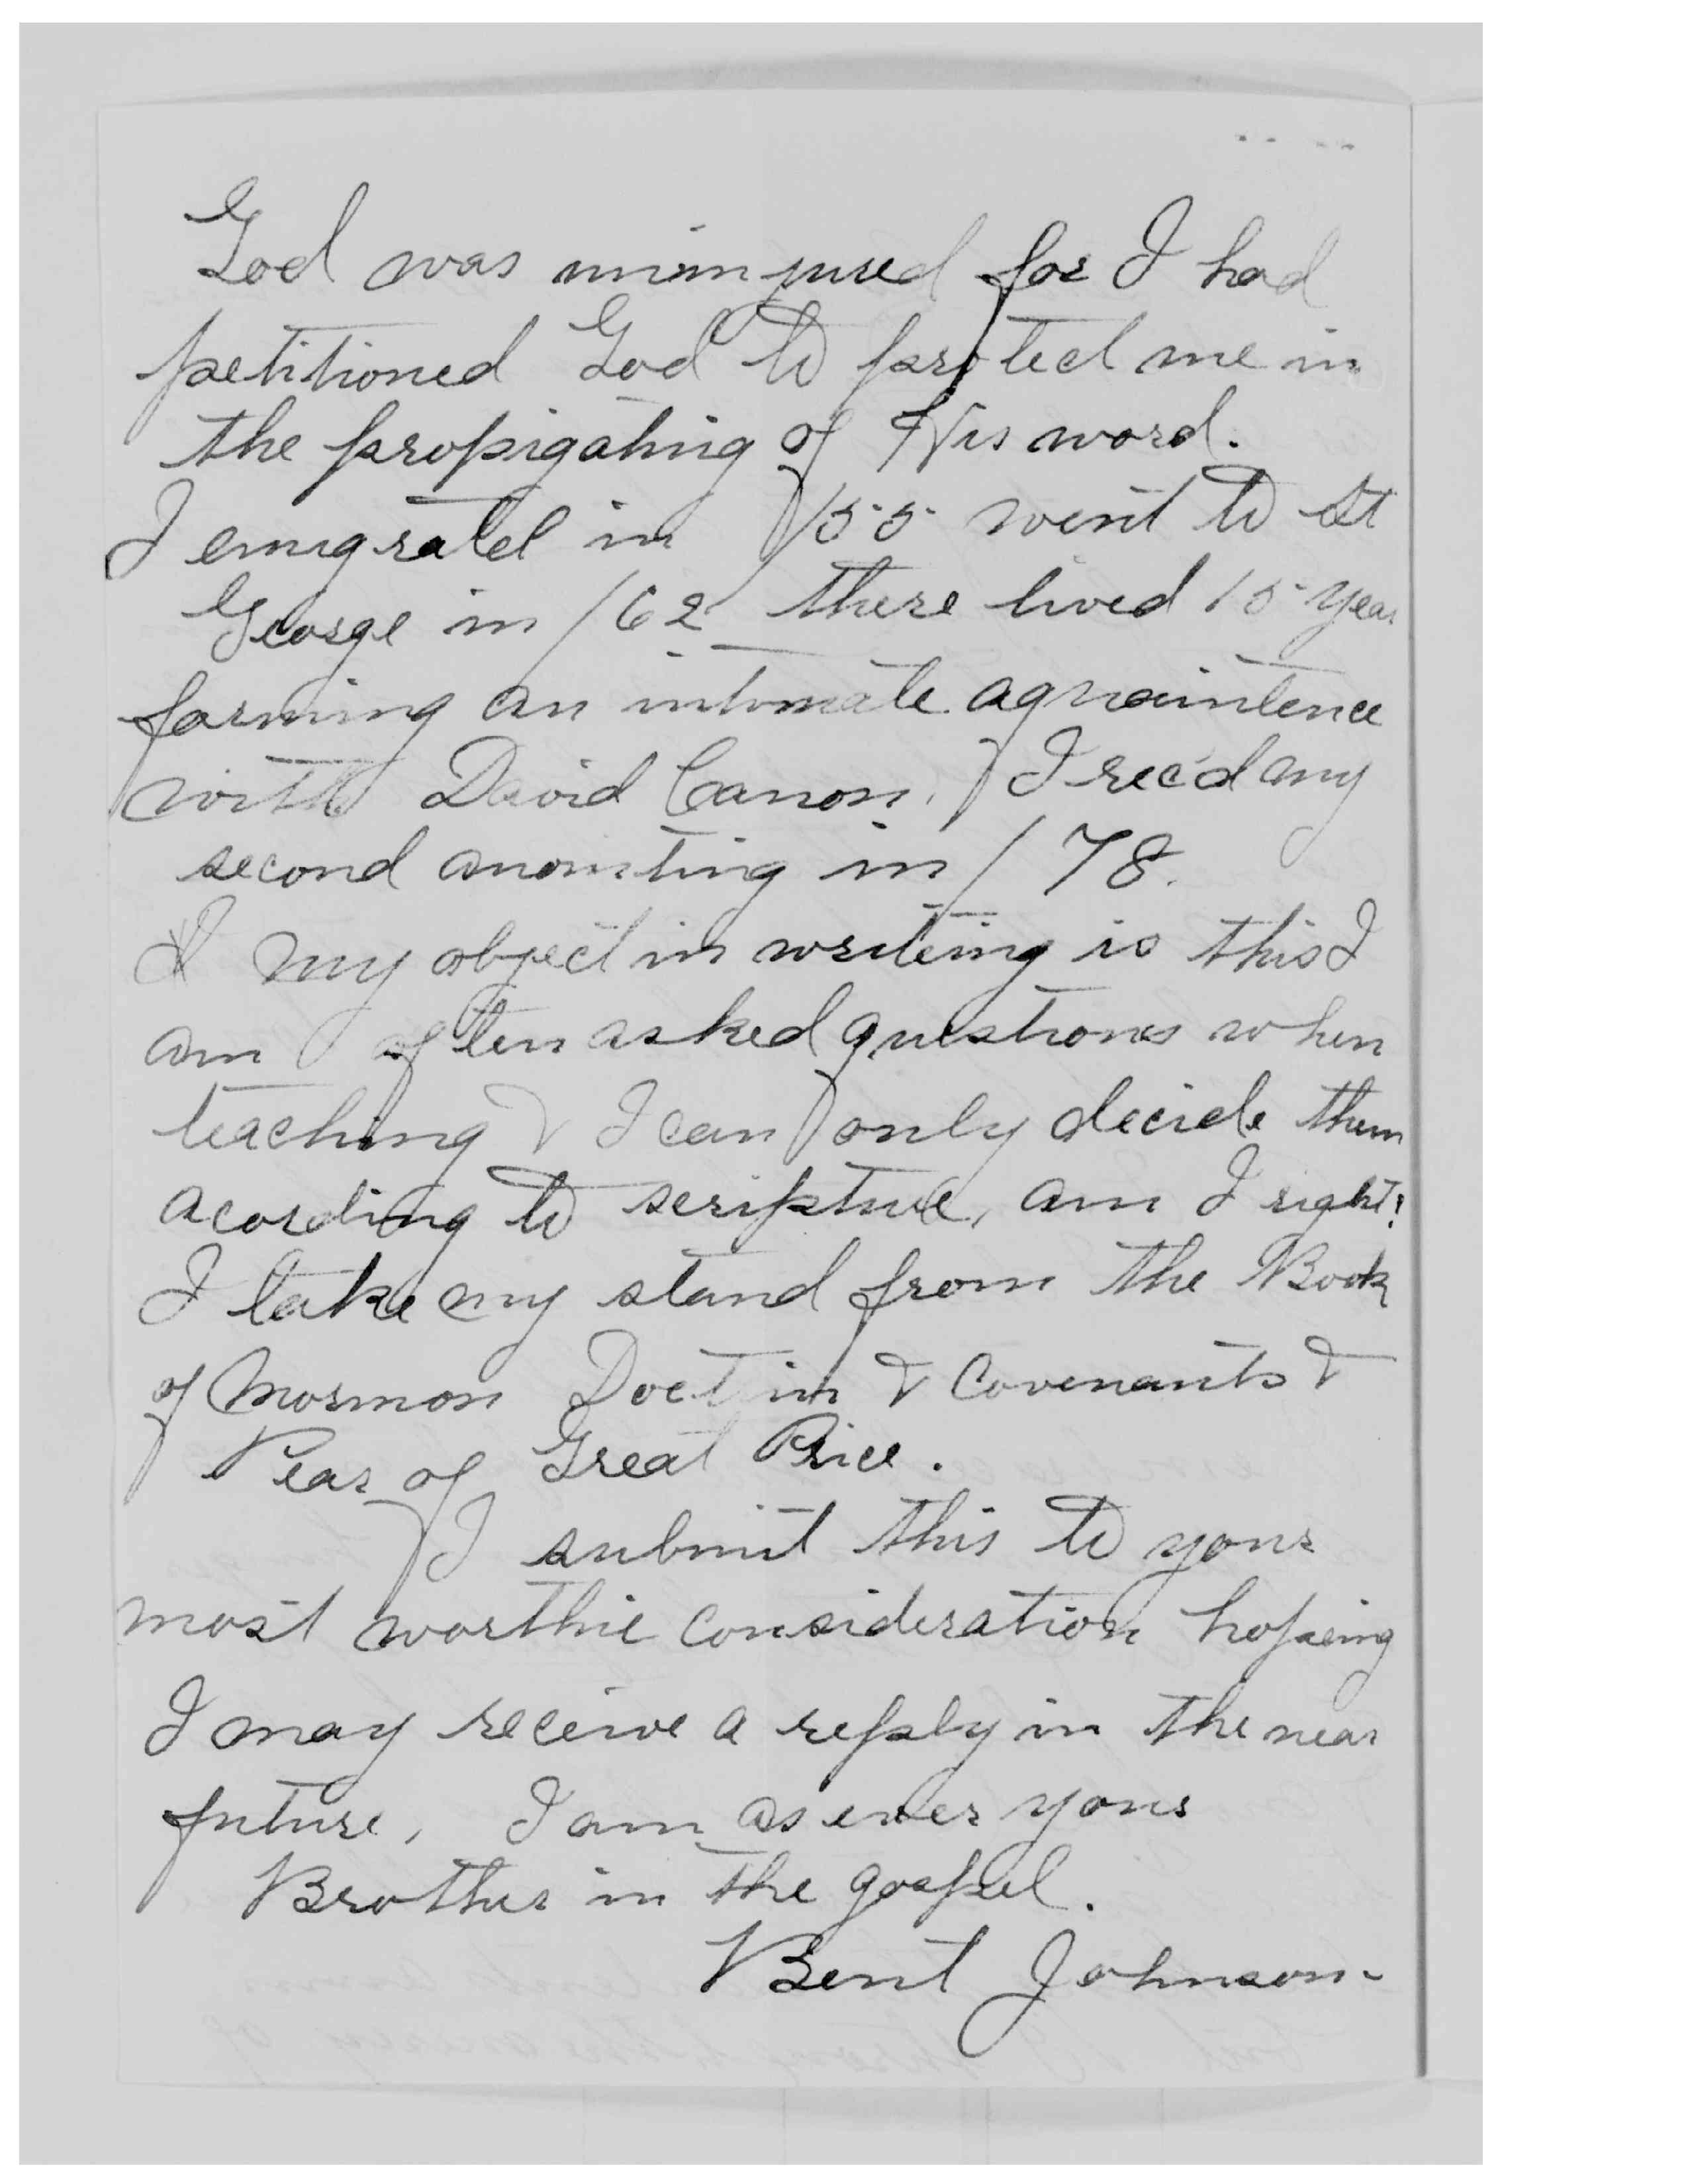 God was uninjured for I had
petitioned God to protect me in
the propigating of His word.
I emigrated in /55 went to St
George in /62 there lived 15 year
forming an intimate aquaintence
with David Canon. I rec'd my
second anointing in /78.
my object in writeing is this I
am often asked questions when
teaching & I can only decide them
acording to scripture, am I right?
I take my stand from the Book
of Mormon Doctrin & Covenants &
Pear of Great Price.
I submit this to your
most worthie consideration hopeing
I may receive a reply in the near
future, I am as ever your
Brother in the gospel.
Bent Johnson